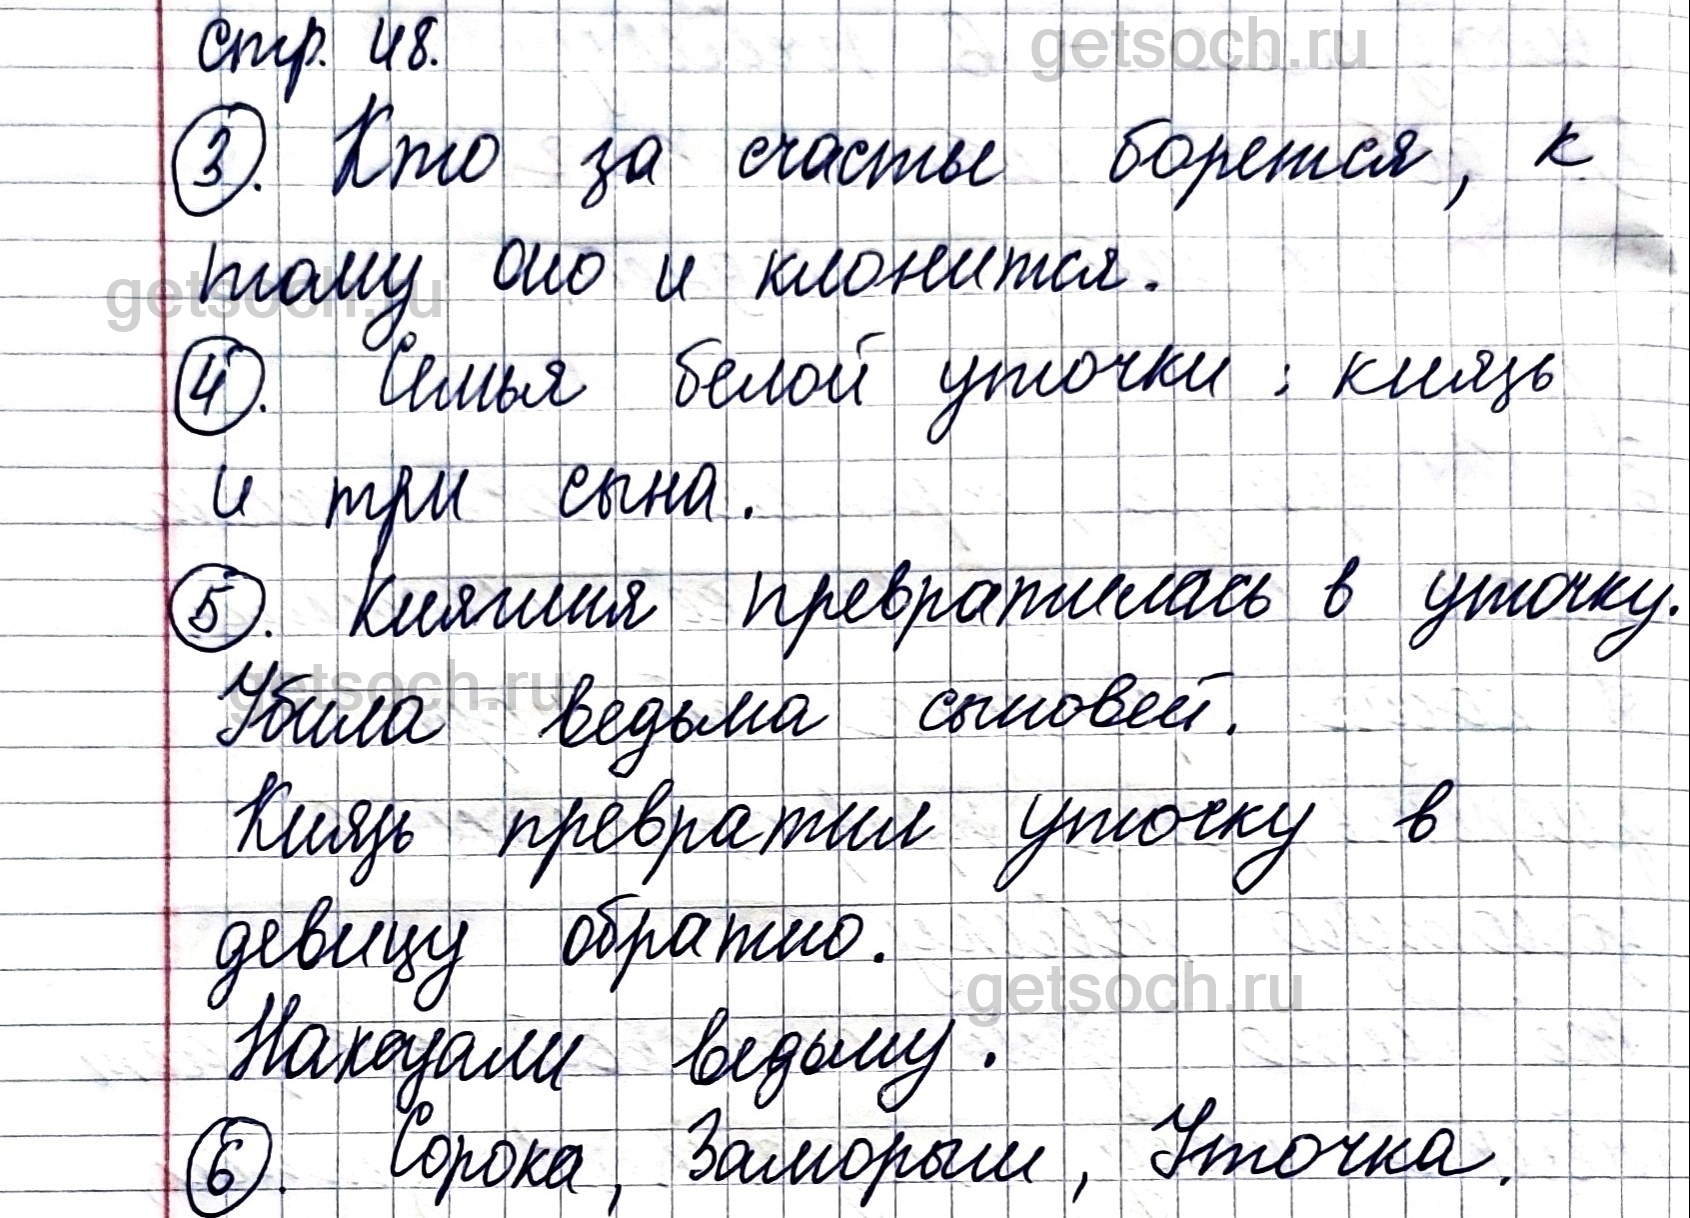 стр. 48.
getsoch.ru
3. Кто за счастье борется, к
тому оно и клонится.
getsoch.ru
4. Семья белой уточки : князь
и три сына.
5. Княгиня превратилась в уточку.
getsoch.ru
Убила ведьма сыновей.
Князь превратил уточку в
девицу обратно.
getsoch.ru
Наказали ведьму.
6. Сорока, Заморыш, Уточка.